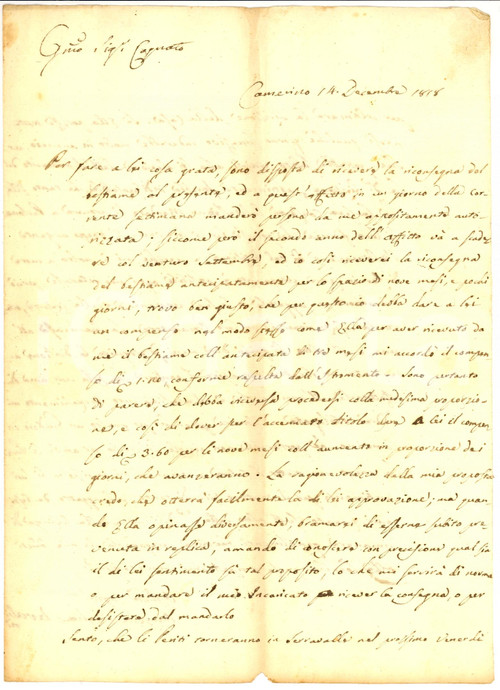 Gmo Sigr Cognato
Camerino 14. Decembre 1818
Per fare a lei cosa grata, sono disposta di ricevere la riconsegna del
bestiame al presente, ed a quest'effetto in un giorno della Cor-
rente settimana manderò persona da me appositamente auto-
rizzata; siccome però il secondo anno dell'affitto và a scade-
re col venturo Settembre, ed io così riceverei la riconsegna
del bestiame anticipatamente per lo spazio di nove mesi, e pochi
giorni, trovo ben giusto, che per questo io debba dare a lei
un compenso nel modo stesso come Ella per aver ricevuto da
me il bestiame coll'anticipata di tre mesi mi accordò il compen-
so di 1:20, conforme risulta dall'Istromento. Sono pertanto
di parere, che debba viceversa procedersi colla medesima proporzio-
ne, e così di dover per l'accennato titolo dare a lei il compen-
so di 3:60 per li nove mesi coll'aumento in proporzione dei
giorni, che avanzeranno. La ragionevolezza della mia proposta
credo, che otterrà facilmente la di lei approvazione; ma quan-
do Ella opinasse diversamente, bramarei di esserne subito pre-
venuta in replica, amando di conoscere con precisione qual sia
il di lei sentimento su tal proposito, lo che mi servirà di norma
o per mandare il mio Incaricato a ricever la consegna, o per
desistere dal mandarlo
Sento, che li Periti torneranno in Serravalle nel prossimo Venerdì